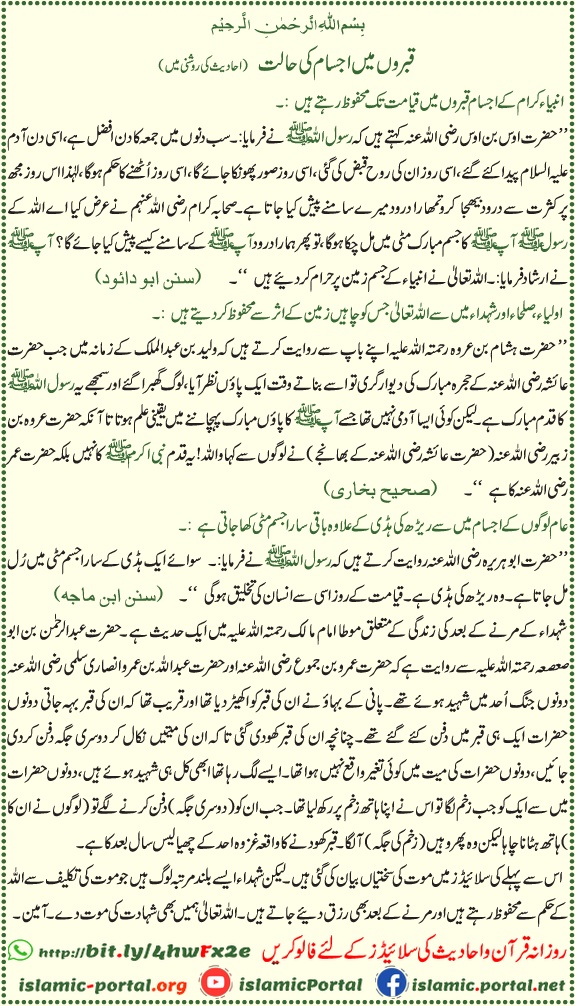 بِسْمِ اللهِ الرَّحْمٰنِ الرَّحِيْمِ
قبروں میں اجسام کی حالت (احادیث کی روشنی میں)
انبیاء کرام کے اجسام قبروں میں قیامت تک محفوظ رہتے ہیں :۔
’’حضرت اوس بن اوس رضی اللہ عنہ کہتے ہیں کہ رسول اللہ ﷺ نے فرمایا:۔ سب دنوں میں جمعہ کا دن افضل ہے، اسی دن آدم
علیہ السلام پیدا کئے گئے، اسی روز ان کی روح قبض کی گئی، اسی روز صور پھونکا جائے گا، اسی روز اُٹھنے کا حکم ہوگا، لہٰذا اس روز مجھ
پر کثرت سے درود بھیجا کرو تمھارا درود میرے سامنے پیش کیا جاتا ہے۔ صحابہ کرام رضی اللہ عنہم نے عرض کیا اے اللہ کے
رسول ﷺ آپ ﷺ کا جسم مبارک مٹی میں مل چکا ہوگا، تو پھر ہمارا درود آپ ﷺ کے سامنے کیسے پیش کیا جائے گا؟ آپ ﷺ
نے ارشاد فرمایا:۔ اللہ تعالیٰ نے انبیاء کے جسم زمین پر حرام کر دیئے ہیں ‘‘۔ (سنن ابو دائود)
اولیاء، صلحاء اور شہداء میں سے اللہ تعالیٰ جس کو چاہیں زمین کے اثر سے محفوظ کر دیتے ہیں :۔
’’حضرت ہشام بن عروہ رحمتہ اللہ علیہ اپنے باپ سے روایت کرتے ہیں کہ ولید بن عبد الملک کے زمانہ میں جب حضرت
عائشہ رضی اللہ عنہ کے حجرہ مبارک کی دیوار گری تو اسے بناتے وقت ایک پاؤں نظر آیا، لوگ گھبرا گئے اور سمجھے یہ رسول اللہ ﷺ
کا قدم مبارک ہے۔ لیکن کوئی ایسا آدمی نہیں تھا جسے آپ ﷺ کا پاؤں مبارک پہچاننے میں یقینی علم ہوتا تا آنکہ حضرت عروہ بن
زبیر رضی اللہ عنہ (حضرت عائشہ رضی اللہ عنہ کے بھانجے) نے لوگوں سے کہا واللہ! یہ قدم نبی اکرم ﷺ کا نہیں بلکہ حضرت عمر
رضی اللہ عنہ کا ہے ‘‘۔ (صحیح بخاری)
عام لوگوں کے اجسام میں سے ریڑھ کی ہڈی کے علاوہ باقی سارا جسم مٹی کھا جاتی ہے :۔
’’حضرت ابو ہریرہ رضی اللہ عنہ روایت کرتے ہیں کہ رسول اللہ ﷺ نے فرمایا:۔ سوائے ایک ہڈی کے سارا جسم مٹی میں رُل
مل جاتا ہے۔ وہ ریڑھ کی ہڈی ہے۔ قیامت کے روز اسی سے انسان کی تخلیق ہوگی ‘‘۔ (سنن ابن ماجہ)
شہداء کے مرنے کے بعد کی زندگی کے متعلق موطا امام مالک رحمتہ اللہ علیہ میں ایک حدیث ہے۔ حضرت عبدالرحمٰن بن ابو
صعصعہ رحمتہ اللہ علیہ سے روایت ہے کہ حضرت عمرو بن جموع رضی اللہ عنہ اور حضرت عبداللہ بن عمرو انصاری سلمی رضی اللہ عنہ
دونوں جنگ اُحد میں شہید ہوئے تھے۔ پانی کے بہاؤ نے ان کی قبر کو اکھیڑ دیا تھا اور قریب تھا کہ ان کی قبر بہہ جاتی دونوں
حضرات ایک ہی قبر میں دفن کئے گئے تھے۔ چنانچہ ان کی قبر کھودی گئی تاکہ ان کی میتیں نکال کر دوسری جگہ دفن کر دی
جائیں، دونوں حضرات کی میت میں کوئی تغیر واقع نہیں ہوا تھا۔ ایسے لگ رہا تھا ابھی کل ہی شہید ہوئے ہیں، دونوں حضرات
میں سے ایک کو جب زخم لگا تو اس نے اپنا ہاتھ زخم پر رکھ لیا تھا۔ جب ان کو (دوسری جگہ) دفن کرنے لگے تو (لوگوں نے ان کا
) ہاتھ ہٹانا چاہا لیکن وہ پھر وہیں (زخم کی جگہ) آ لگا۔ قبر کھودنے کا واقعہ غزوہ احد کے چھیالیس سال بعد کا ہے۔
اس سے پہلے کی سلائیڈز میں موت کی سختیاں بیان کی گئی ہیں۔ لیکن شہداء ایسے بلند مرتبہ لوگ ہیں جو موت کی تکلیف سے اللہ
کے حکم سے محفوظ رہتے ہیں اور مرنے کے بعد بھی رزق دیئے جاتے ہیں۔ اللہ تعالیٰ ہمیں بھی شہادت کی موت دے۔ آمین۔
روزانہ قرآن و احادیث کی سلائیڈز کے لئے فالو کریں http://bit.ly/4hwFx2e
islamic-portal.org islamicPortal islamic.portal.net